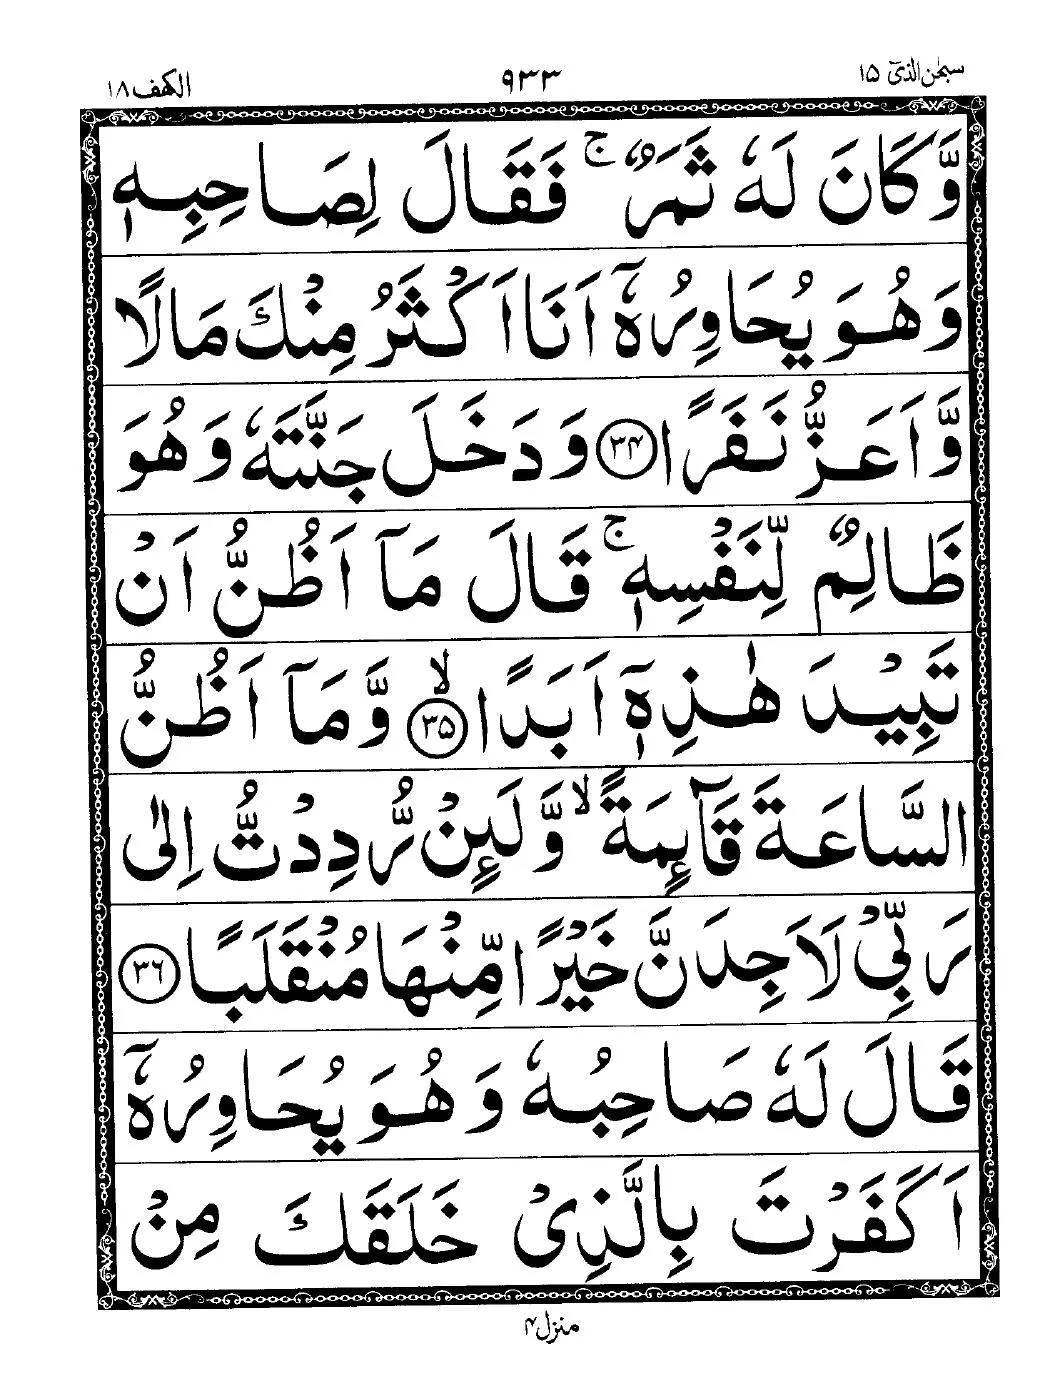 سبحٰن الذیٓ ١٥
٩٣٣
الكهف ١٨
وَّكَانَ لَهٗ ثَمَرٌ ۚ فَقَالَ لِصَاحِبِهٖ
وَهُوَ يُحَاوِرُهٗۤ اَنَا اَكْثَرُ مِنْكَ مَالًا
وَّاَعَزُّ نَفَرًا ﴿۳۴﴾ وَدَخَلَ جَنَّتَهٗ وَهُوَ
ظَالِمٌ لِّنَفْسِهٖ ۚ قَالَ مَاۤ اَظُنُّ اَنْ
تَبِيْدَ هٰذِهٖۤ اَبَدًا ﴿۳۵﴾ ۙ وَّمَاۤ اَظُنُّ
السَّاعَةَ قَآئِمَةً ۙ وَّلَئِنْ رُّدِدْتُّ اِلٰى
رَبِّيْ لَاَجِدَنَّ خَيْرًا مِّنْهَا مُنْقَلَبًا ﴿۳۶﴾
قَالَ لَهٗ صَاحِبُهٗ وَهُوَ يُحَاوِرُهٗۤ
اَكَفَرْتَ بِالَّذِيْ خَلَقَكَ مِنْ
منزل۴